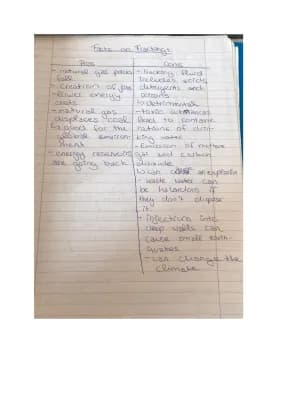 Facts on Fracking:
Pros
- natural gas prices
fall
- Creation of jobs
- lower energy
costs
- natural gas
displaces coal
& good for the
global environ-
ment
- energy reserves
are going back
Cons
- fracking fluid
includes acids,
detergents and
poisons
- toxic substances
lead to contami-
nations of drin-
king water
- Emission of methane
and carbon
dioxide
explosion
- waste water can
be hazardous if
they don't dispose
it
- injections into
deep wells can
cause small earth-
quakes
- can change the
climate